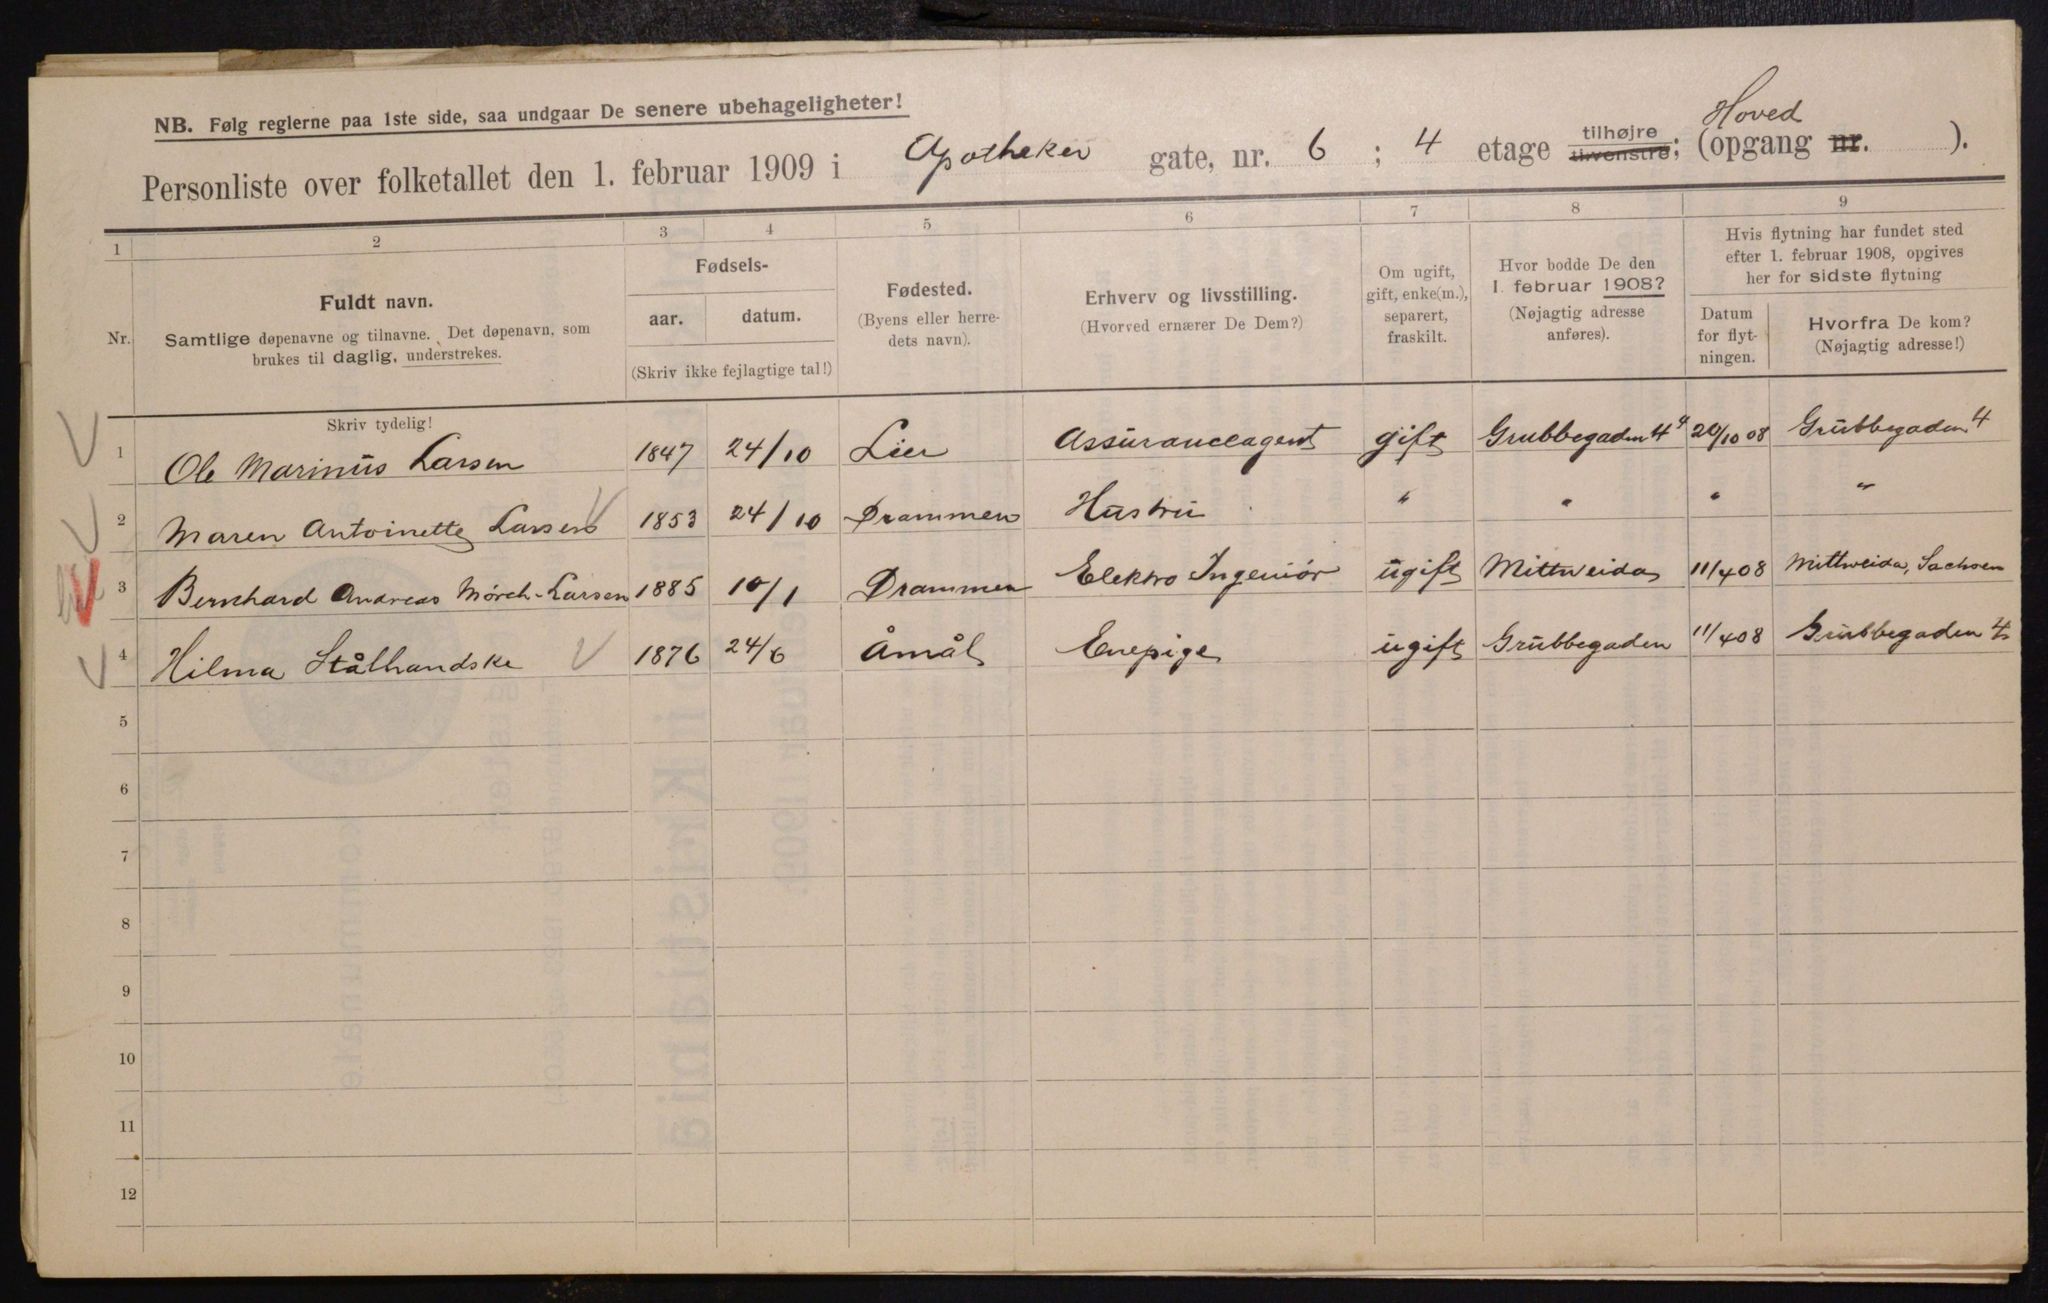 NB. Følg reglerne paa 1ste side, saa undgaar De senere ubehageligheter!
Personliste over folketallet den 1. februar 1909 i Apotheker gate, nr. 6 ; 4 etage tilhøjre tilvenstre; (opgang nr. Hoved ).
1 2 3 4 5 6 7 8 9
Nr.
Fuldt navn.
Samtlige døpenavne og tilnavne. Det døpenavn, som
brukes til daglig, understrekes.
Fødsels-
aar. datum.
(Skriv ikke fejlagtige tal!)
Fødested.
(Byens eller herre-
dets navn).
Erhverv og livsstilling.
(Hvorved ernærer De Dem?)
Om ugift,
gift, enke(m.),
separert,
fraskilt.
Hvor bodde De den
1. februar 1908?
(Nøjagtig adresse
anføres).
Hvis flytning har fundet sted
efter 1. februar 1908, opgives
her for sidste flytning
Datum
for flyt-
ningen.
Hvorfra De kom?
(Nøjagtig adresse!)
Skriv tydelig!
1 Ole Marinus Larsen 1847 24/10 Lier Assuranceagent gift Grubbegaden 4 4 20/10 08 Grubbegaden 4
2 Maren Antoinette Larsen 1853 24/10 Drammen Hustru " " " "
3 Bernhard Andreas Mörch-Larsen 1885 10/1 Drammen Elektro Ingeniör ugift Mittweida 11/4 08 Mittweida, Sachsen
4 Hilma Stålhandske 1876 24/6 Åmål Enepige ugift Grubbegaden 11/4 08 Grubbegaden 4
5
6
7
8
9
10
11
12